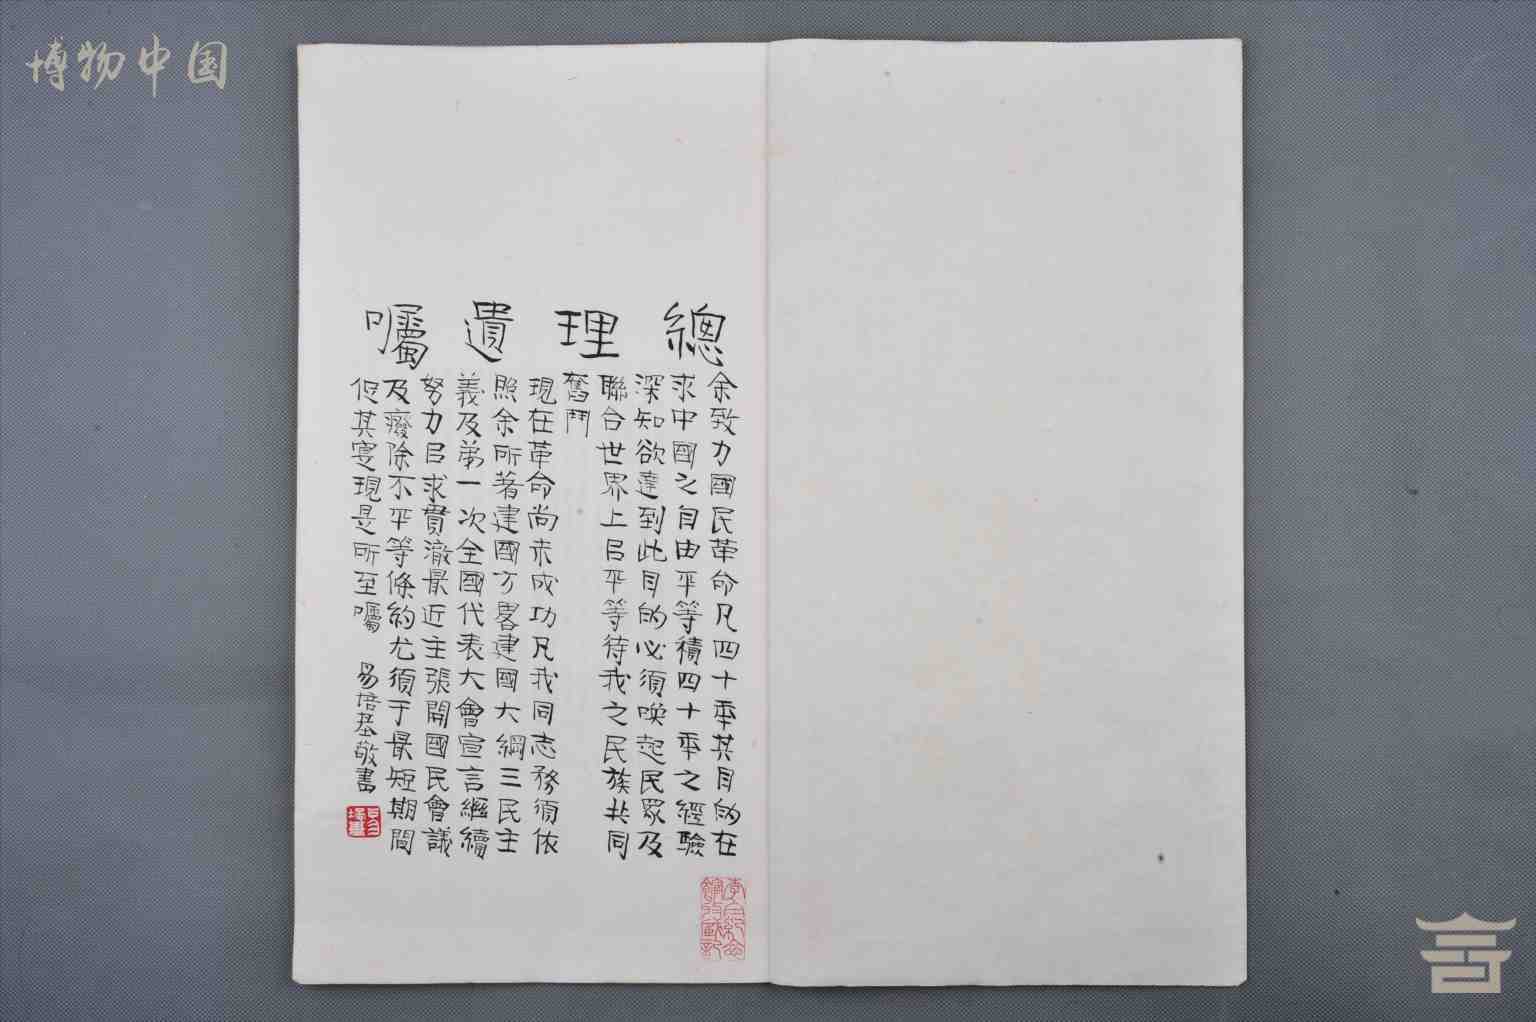 博物中国
總理遺囑
余致力國民革命凡四十年其目的在
求中國之自由平等積四十年之經驗
深知欲達到此目的必須喚起民眾及
聯合世界上㠯平等待我之民族共同
奮鬥
現在革命尚未成功凡我同志務須依
照余所著建國方畧建國大綱三民主
義及第一次全國代表大會宣言繼續
努力㠯求貫澈最近主張開國民會議
及廢除不平等條約尤須于最短期間
促其寔現是所至囑
易培基敬書